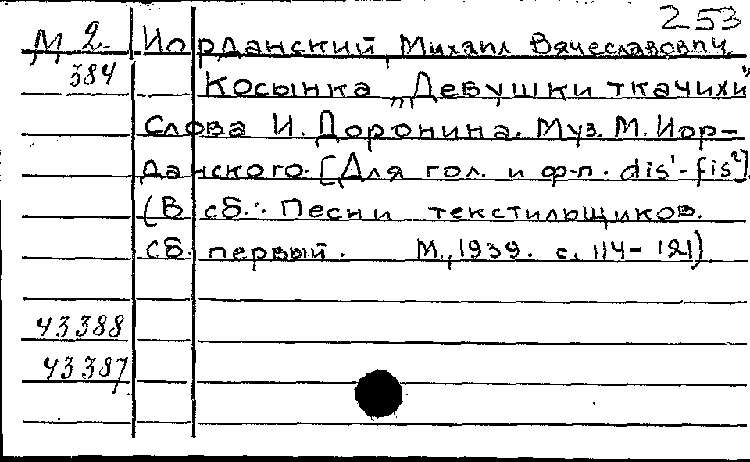 253
М 2 Иорданский, Михаил Вячеславович.
384 Косынка „Девушки ткачихи"
Слова И. Доронина. Муз. М. Иор-
данского. [Для гол. и ф-п. dis¹-fis²]
(В сб.: Песни текстильщиков.
сб. первый. М., 1939. с. 114-121)
43388
43387